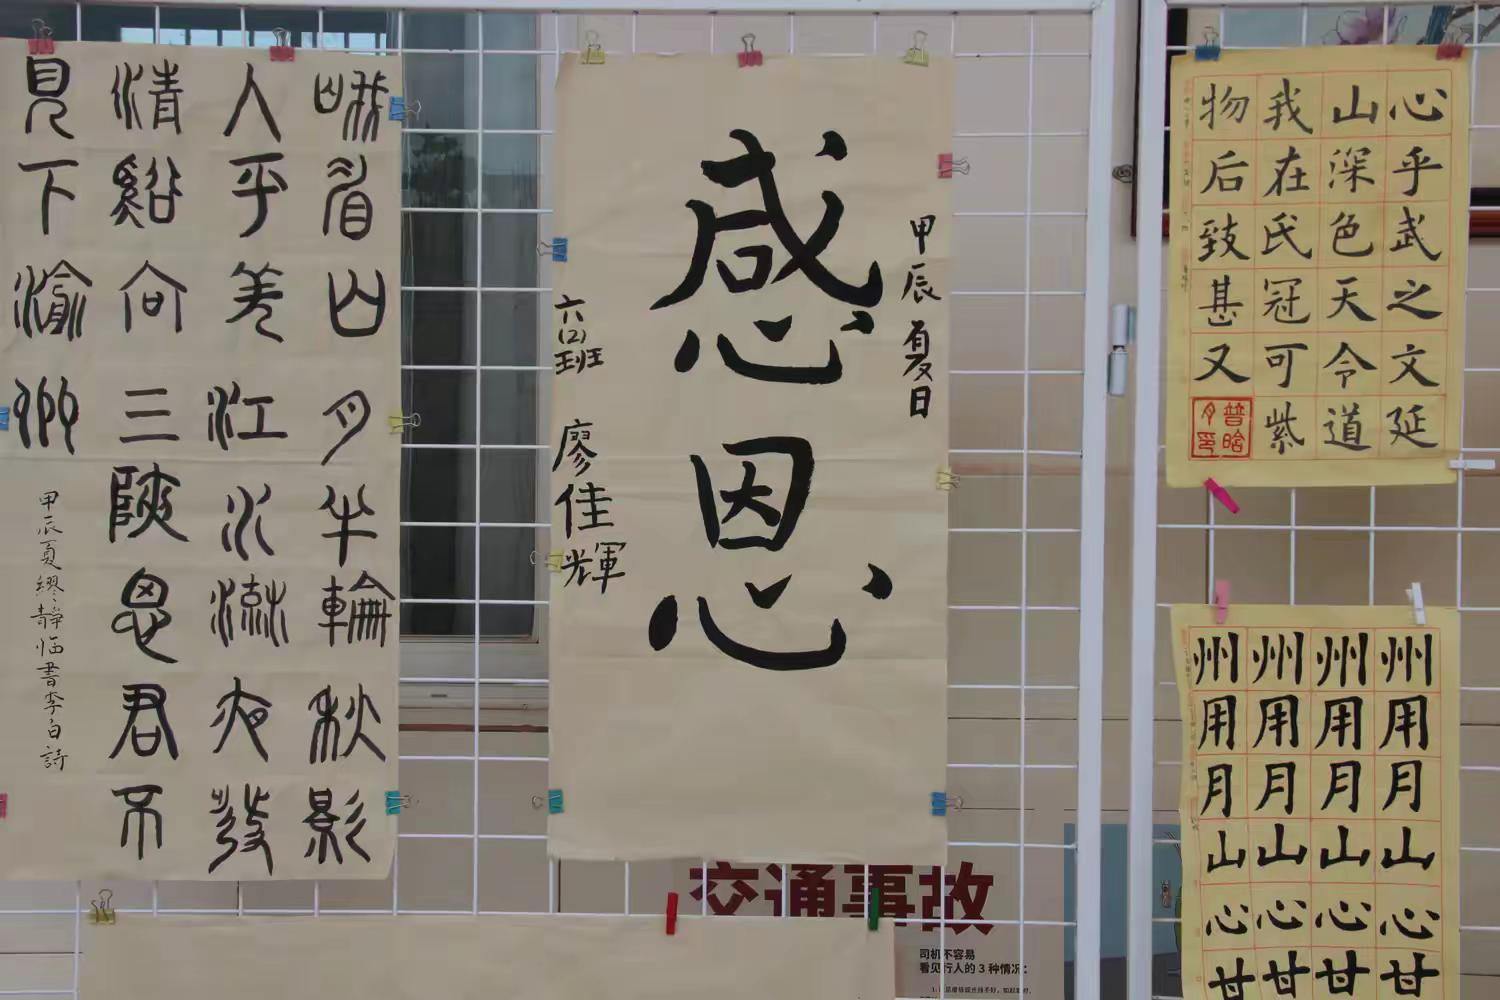 峨眉山月半輪秋影
入平羌江水流夜發
清谿向三峽思君不
見下渝州
甲辰夏繆静临書李白詩
甲辰夏日
感恩
六(2)班
廖佳輝
心乎武之文延
山深色天令道
我在氏冠可紫
物后致甚又
州用月山心甘
州用月山心甘
州用月山心甘
州用月山心甘
交通事故
司机不容易
看见行人的3种情况：